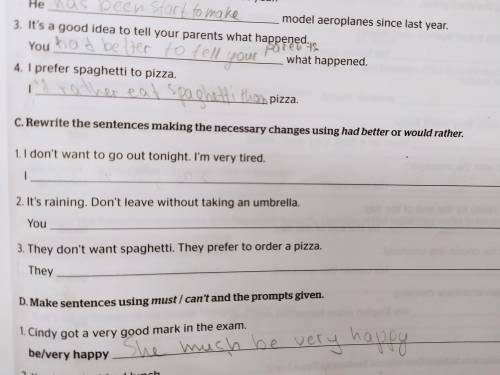 He has been start to make model aeroplanes since last year.
3. It's a good idea to tell your parents what happened.
You had better to tell your parents what happened.
4. I prefer spaghetti to pizza.
I 'd rather eat spaghetti than pizza.
C. Rewrite the sentences making the necessary changes using had better or would rather.
1. I don't want to go out tonight. I'm very tired.
I
2. It's raining. Don't leave without taking an umbrella.
You
3. They don't want spaghetti. They prefer to order a pizza.
They
D. Make sentences using must / can't and the prompts given.
1. Cindy got a very good mark in the exam.
be/very happy She much be very happy